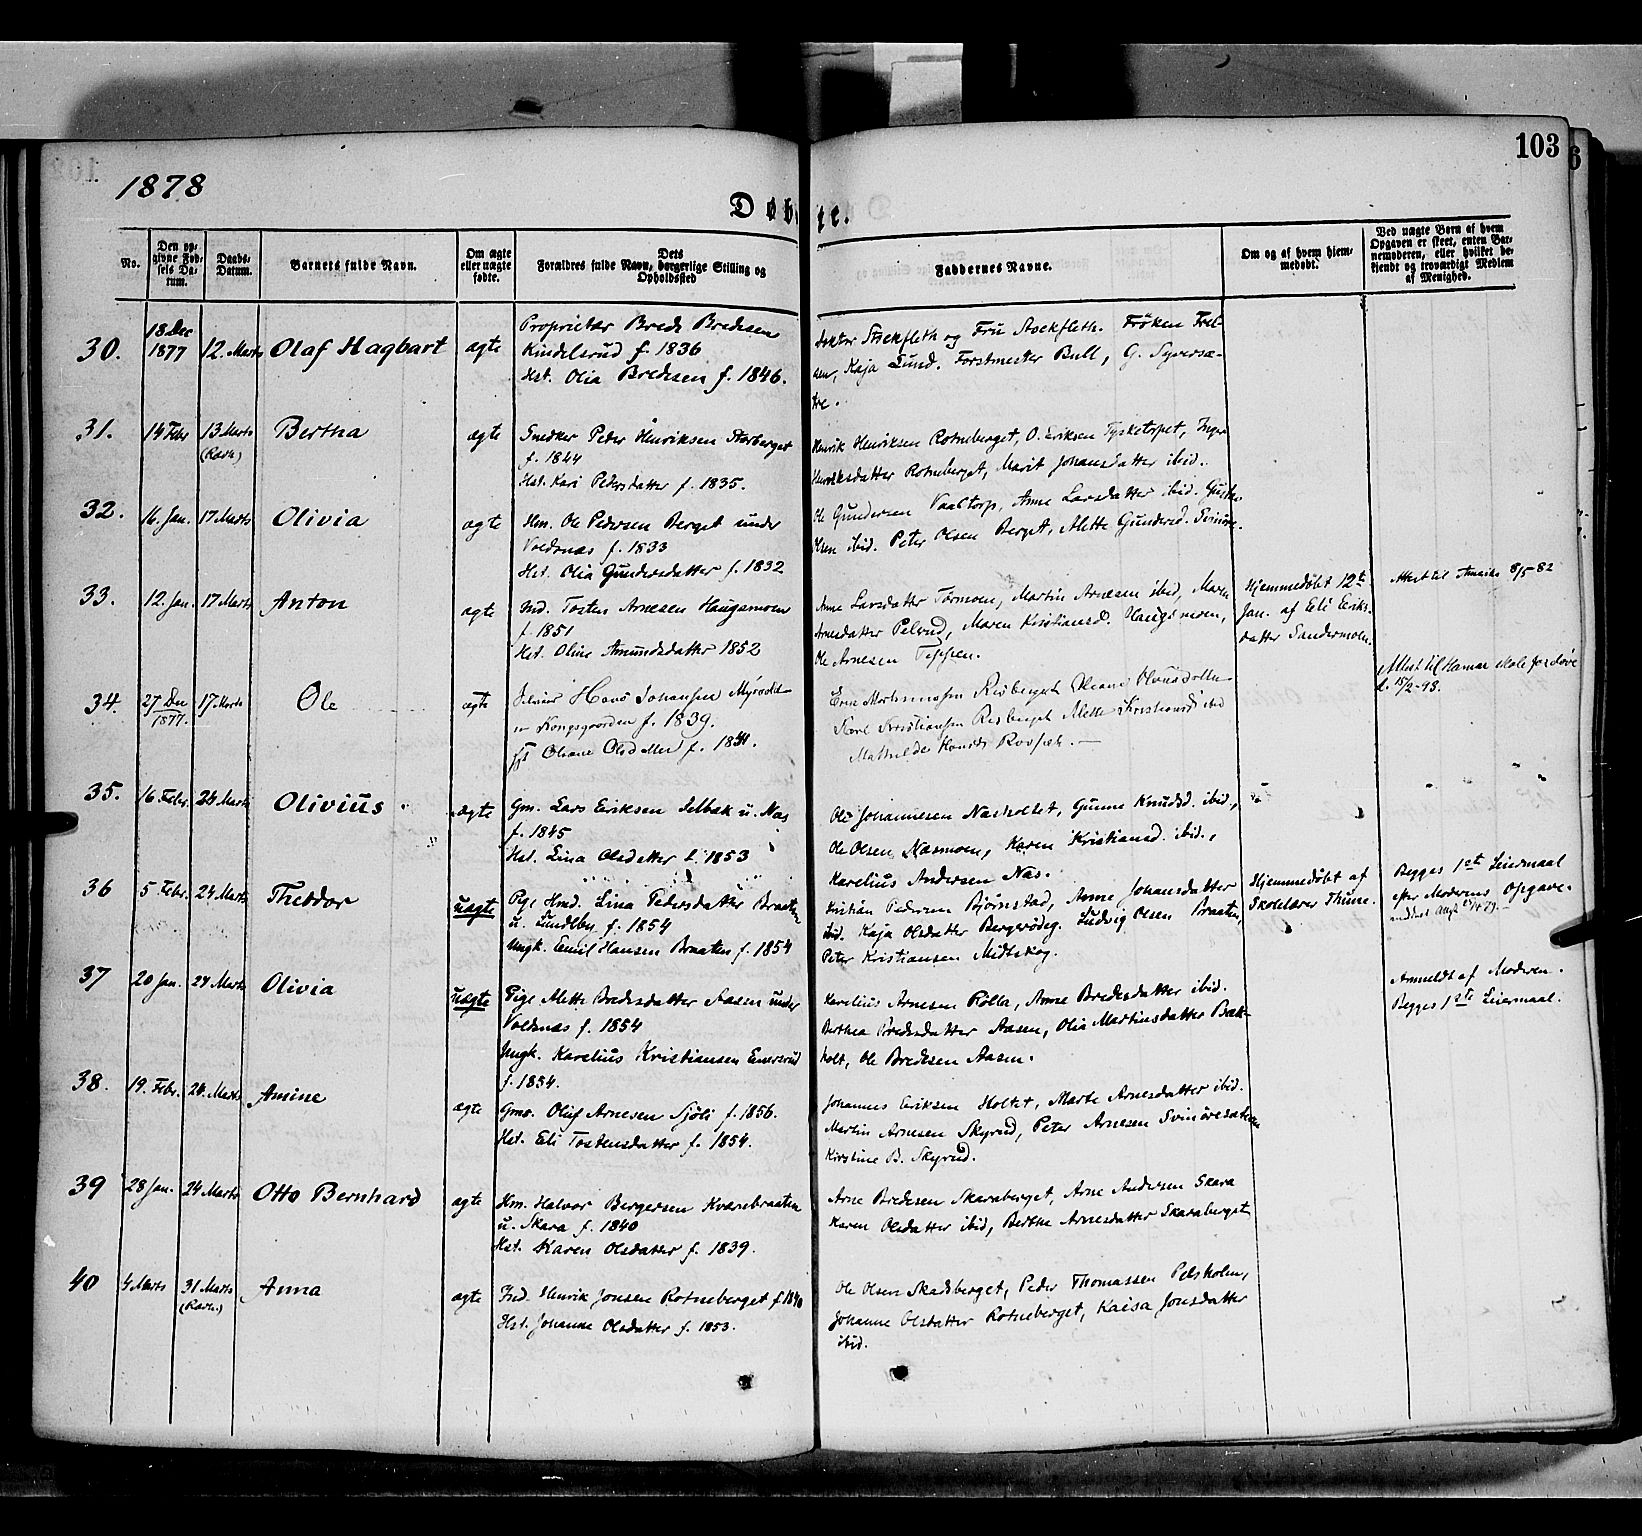 103
1878
Døbte.
No.
Den opgivne Fødsels Datum.
Daabs-Datum.
Barnets fulde Navn.
Om ægte eller uægte fødte.
Dets Forældres fulde Navn, borgerlige Stilling og Opholdssted
Faddernes Navne.
Om og af hvem hjemmedøbt.
Ved uægte Børn af hvem Opgaven er skeet, enten Barnemoderen, eller hvilket bekjendt og troværdigt Medlem af Menighed.
30. 18 Dec 1877 12. Marts Olaf Hagbart ægte
Proprietær Brede Bredesen
Kindelsrud f. 1836
Hst. Olia Bredesen f. 1846.
Doktor Stockfleth og Fru Stockfleth. Frøken
Kaja Lund. Forstmester Bull, G. Syversæ-
tre.
31. 14 Febr 13 Marts (Ravn.) Bertha ægte
Snedker Peder Henriksen Storberget
f. 1844
Hst. Kari Pedersdatter f. 1835.
Henrik Henriksen Rotneberget, O. Eriksen Tysketorpet, Inger
Henriksdatter Rotneberget, Marit Johansdatter ibid.
32. 16. Jan. 17 Marts Olivia ægte
Hm. Ole Pedersen Berget under
Voldnæs f. 1833
Hst. Olia Gundersdatter f. 1832
Ole Gundersen Vaaltorp, Anne Larsdatter ibid.
Olsen ibid. Peter Olsen Berget, Alette Gundersd.
33. 12. Jan. 17 Marts Anton ægte
Ind. Tosten Arnesen Haugsmoen
f. 1851
Hst. Oline Amundsdatter 1852
Anne Larsdatter Tørmoen, Martin Arnesen ibid, Maren
Arnesdatter Pelrud, Maren Kristiansd. Haugsmoen,
Ole Arnesen Teppen.
Hjemmedøbt 12te
Jan. af Eli Eriks-
datter Sandermoen.
Attest til Amerika 8/5 82
34. 27 Dec 1877. 17 Marts Ole ægte
Hans Johansen
Kongsgaarden f. 1839.
Oleane Olsdatter f.
Karl Kristiansen Risberget Alette Kristiansd ibid
Mathilde
Attest til Hamar
d. 15/2-93.
35. 16 Febr. 24 Marts Olivius ægte
Gm. Lars Eriksen Selbæk u. Næs
f. 1845
Hst. Lina Olsdatter f. 1853
Ole Johannesen Næsholtet, Gunne Knudsd. ibid.,
Ole Olsen Næsmoen, Karen Kristiansd. ibid.,
Karelius Andersen Næs.
36 5 Febr. 24 Marts Theodor uægte
Pige Hmd. Lina Pedersdatter Braaten
u. Lundby f. 1854
Ungk. Emil Hansen Braaten f. 1854
Kristian Pedersen Bjørnstad, Anne Johansdatter
ibid. Kaja Olsdatter Bergerødeg. Ludvig Olsen Braaten,
Peter Kristiansen Midtskog.
Hjemmedøbt af
Skolelærer Thune.
Begges 1st Leiermaal
efter Moderens Opgave.
37 20 Jan. 24 Marts Olivia uægte
Pige Alette Bredesdatter Aasen under
Voldnæs f. 1854
Ungk. Karelius Kristiansen Emersrud
f. 1854.
Karelius Arnesen Rølla, Anne Bredesdatter ibid.
Berthea Bredesdatter Aasen, Olia Martinsdatter Bæk-
holt, Ole Bredesen Aasen.
Anmeldt af Moderen.
Begges 1ste Leiermaal.
38. 19. Febr. 24. Marts Amine ægte
Gm. Oluf Arnesen Sjøli f. 1856.
Hst. Eli Tostensdatter f. 1854.
Johannes Eriksen Holtet, Marte Arnesdatter ibid.
Martin Arnesen Skyrud, Peter Arnesen Svinøresæteren
Kirstine B. Skyrud.
39 28 Jan. 24 Marts Otto Bernhard ægte
Hm. Halvor Bergersen Kværnbraaten
u. Skara f. 1840
Hst. Karen Olsdatter f. 1839.
Arne Bredesen Skaraberget, Arne Andersen Skara
Karen Olsdatter ibid, Berthe Arnesdatter Skaraberget
40 4 Marts 31 Marts (Ravn.) Anna ægte
Ind. Henrik Jonsen Rotneberget f. 1840
Hst. Johanne Olsdatter f. 1853.
Ole Olsen Skadsberget, Peder Thomassen Pelsholen,
Johanne Olsdatter Rotneberget, Kaisa Jonsdatter
ibid.